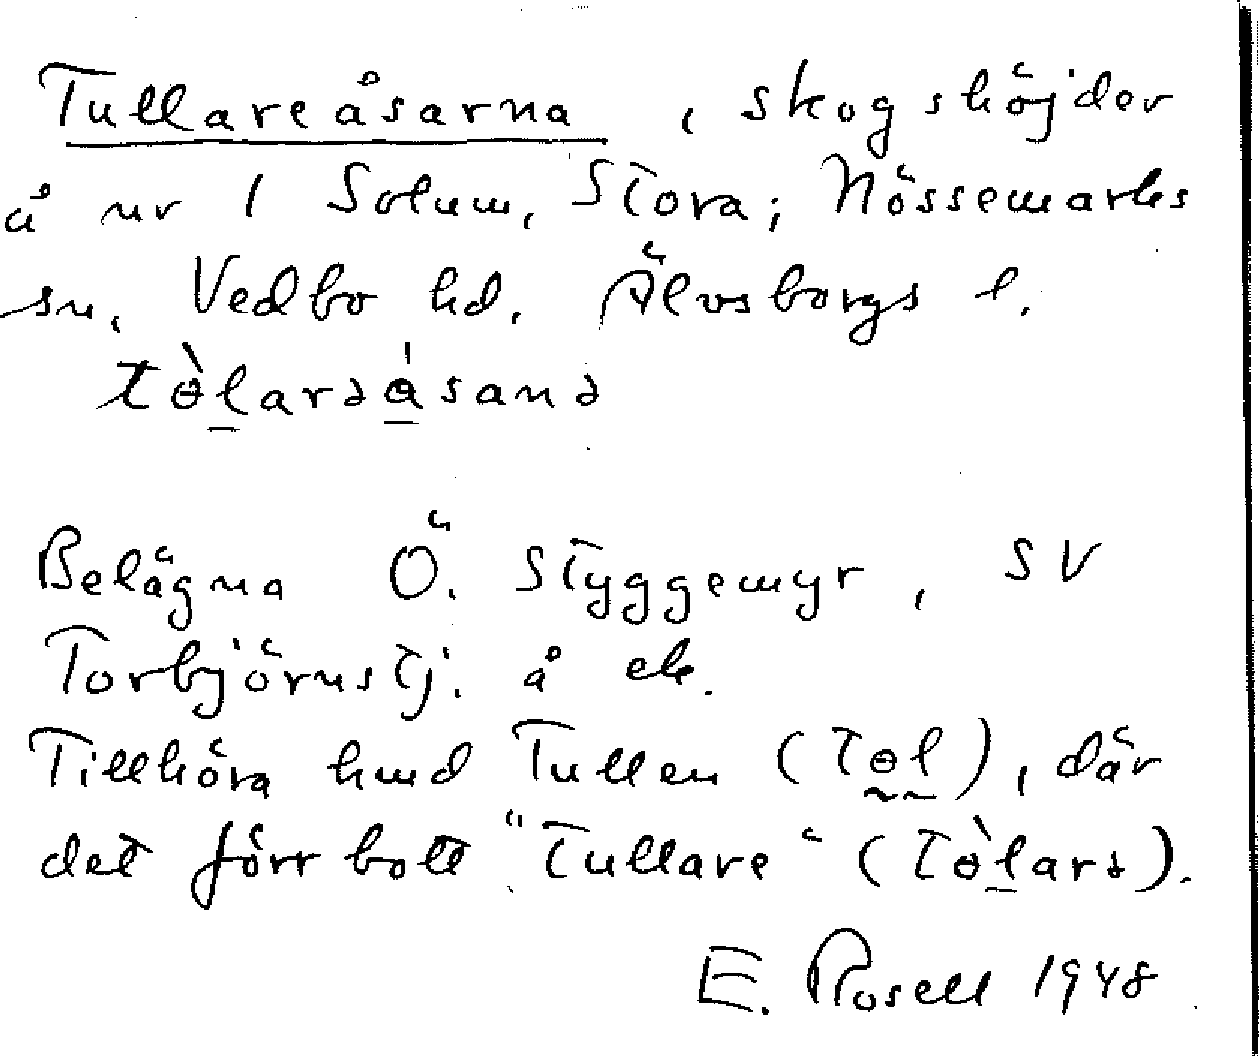 Tullareåsarna, skogshöjder
å nr 1 Solum, Stora; Nössemarks
sn, Vedbo hd. Älvsborgs l.
tɵ̀l̠arəɵ̠́sanə
Belägna Ö. Styggemyr, SV
Torbjörnstj. å ek.
Tillhöra hmd Tullen (tɵl), där
det förr bott "Tullare" (tɵ̀l̠arə).
E. Rosell 1948